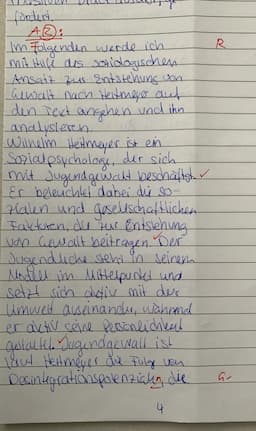 fördert.
A2):
Im Folgenden werde ich R
mit Hilfe des soziologischen
Ansatz zur Entstehung von
Gewalt nach Heitmeyer auf
den Text eingehen und ihn
analysieren.
Wilhelm Heitmeyer ist ein
Sozialpsychologe, der sich
mit Jugendgewalt beschäftigt.
Er beleuchtet dabei die so-
zialen und gesellschaftlichen
Faktoren, die zur Entstehung
von Gewalt beitragen. Der
Jugendliche steht in seinem
Modell im Mittelpunkt und
setzt sich aktiv mit der
Umwelt auseinander, während
er aktiv seine Persönlichkeit
gestaltet. Jugendgewalt ist
laut Heitmeyer die Folge von
Desintegrationspotenzialen, die G
4